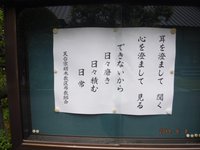 耳を澄まして 聞く
心を澄まして 見る
できないから
日々磨き
日々積む
日常
天台宗栃木教区布教師会